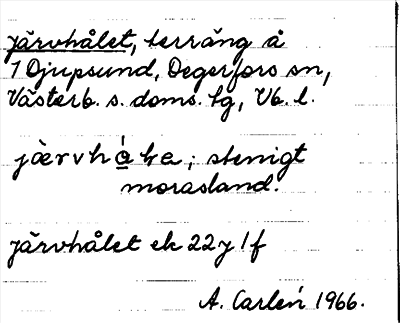 Järvhålet, terräng å
7 Djupsund, Degerfors sn,
Västerb. s. doms. tg, Vb. l.
järvh
; stenigt
morasland.
Järvhålet ek 22 y 1 f
A. Carlén 1966.